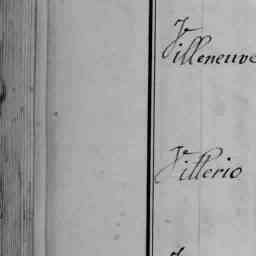 Villeneuve
Villerio